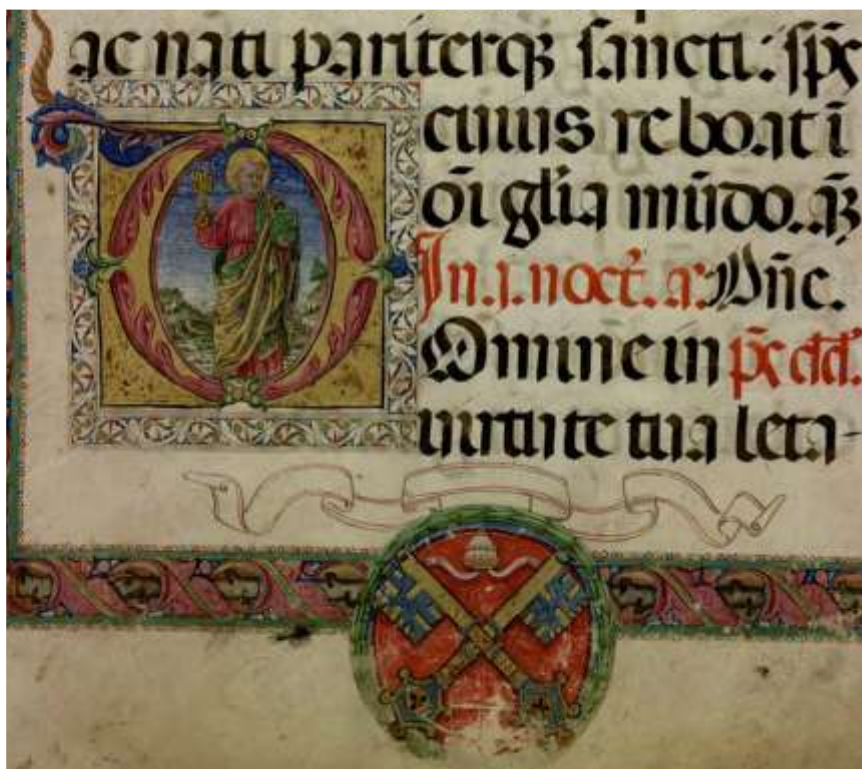 ac nati pariterqꝫ sancti: sp̄s
cuius reboat ī
oı̄ glı̄a mūdo. añ
In .j. noct̄. a. Dñe.
Domine in p̄s dd̄.
uirtute tua leta-